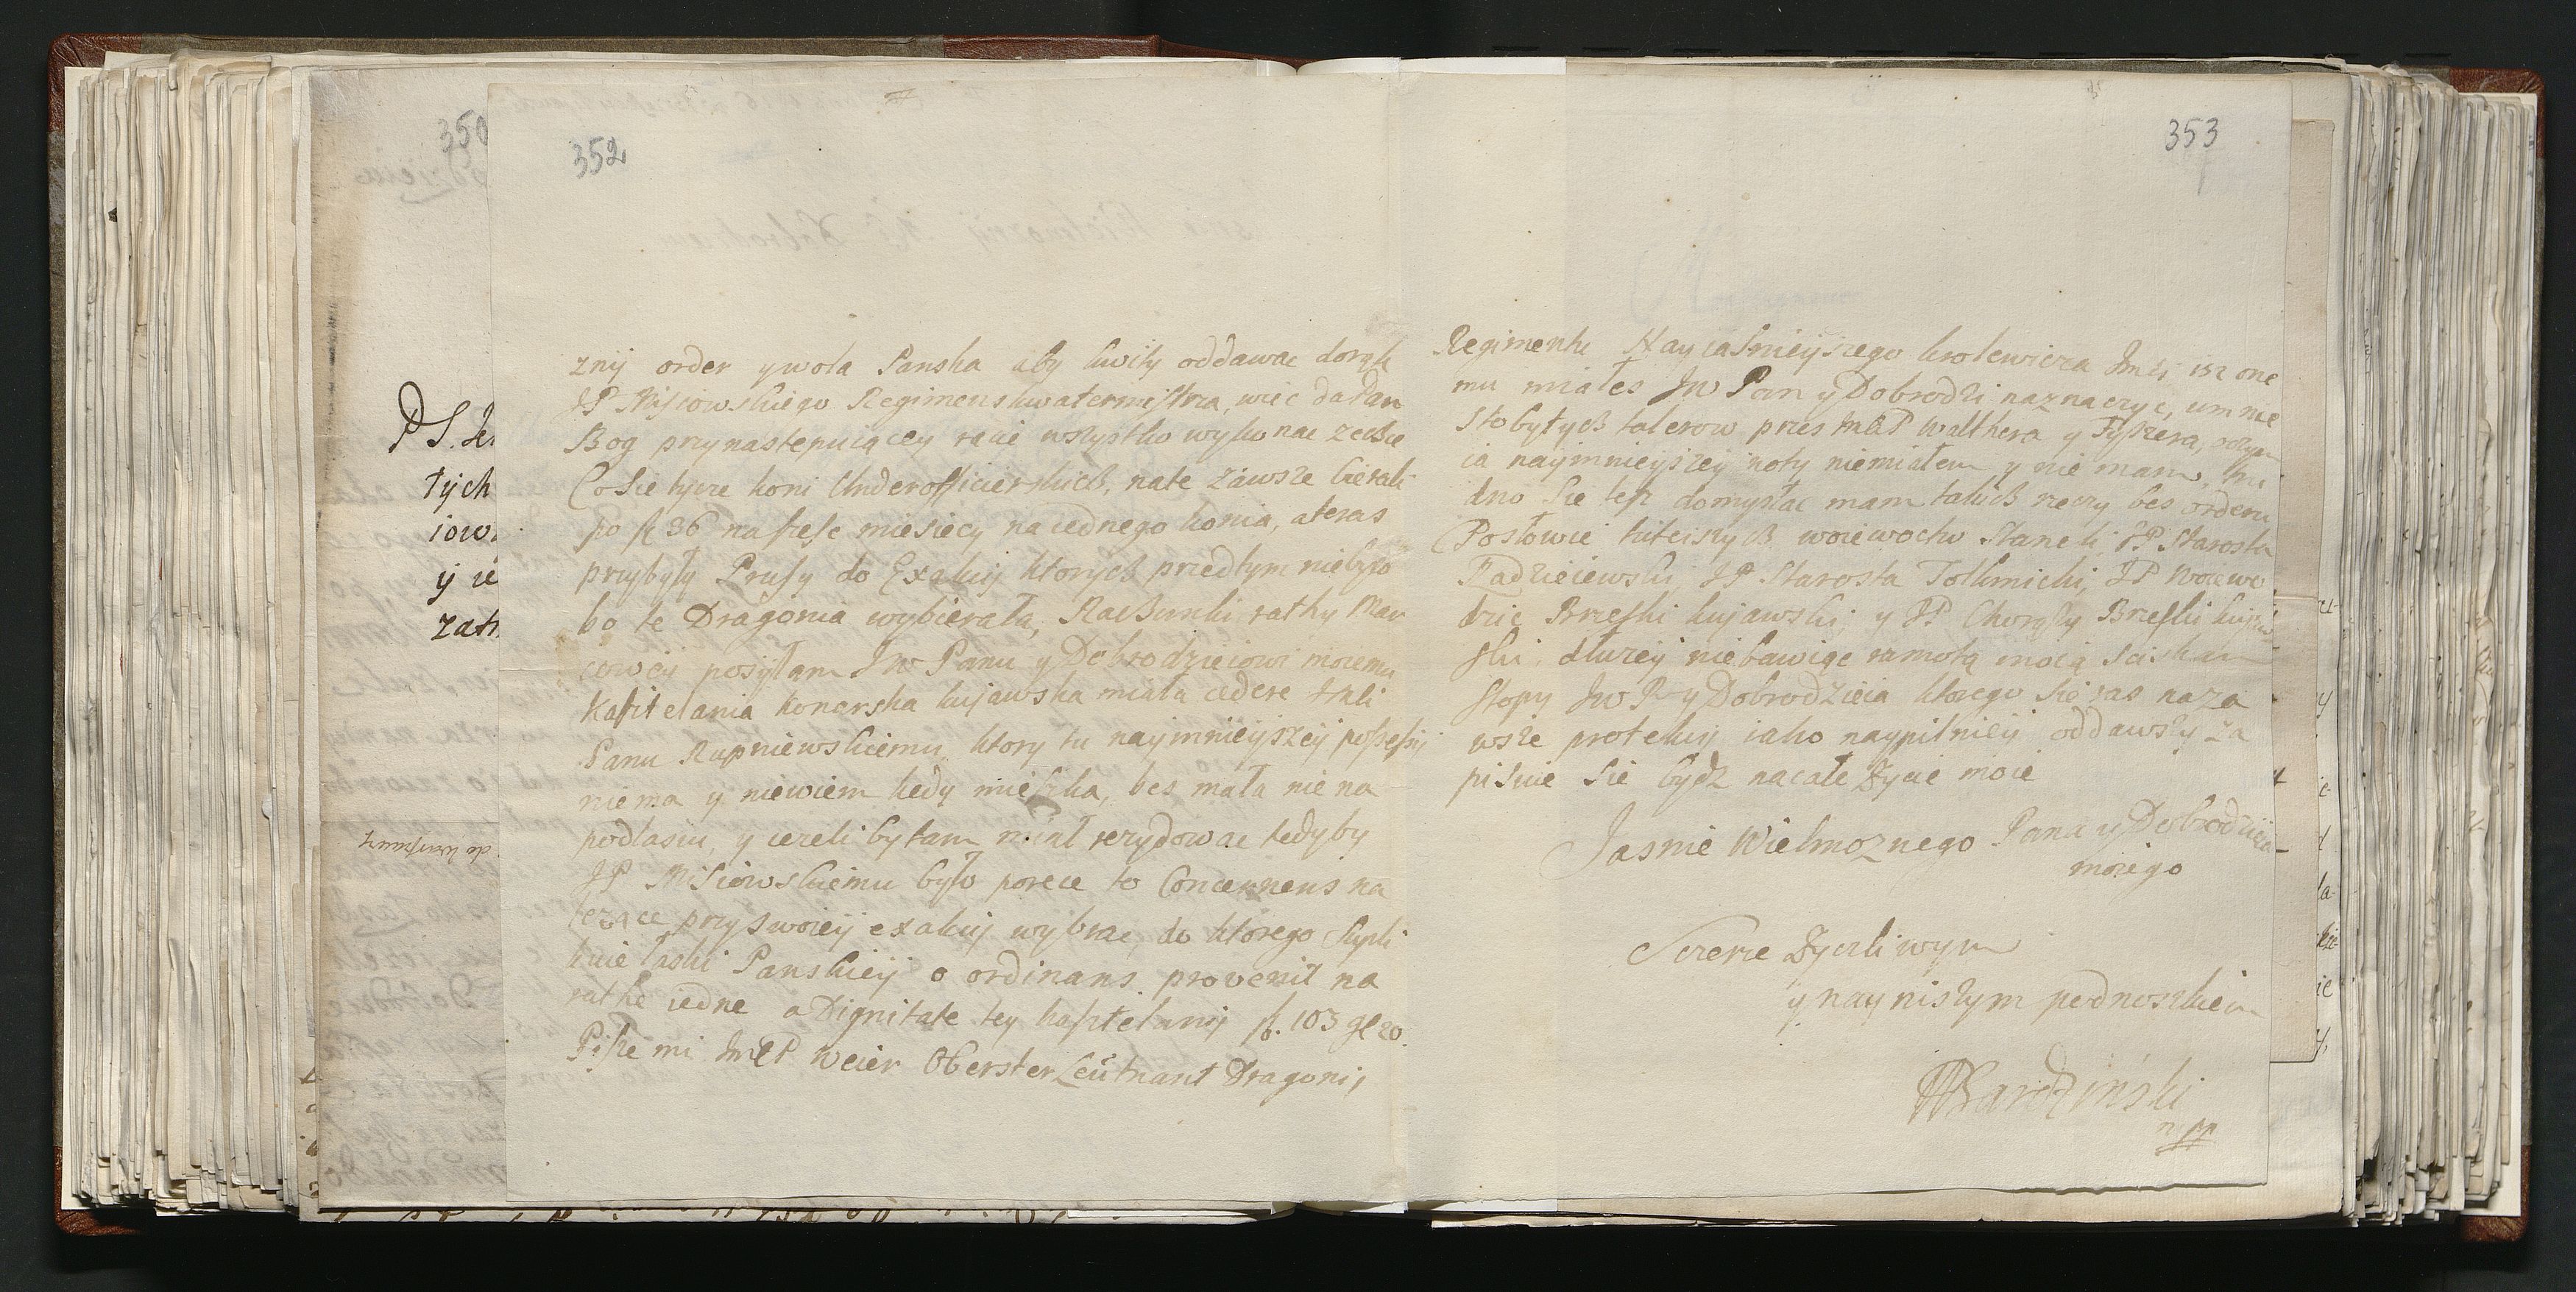 350
352
P S.
tych
iow
ÿ ie
zatr
znÿ order ywola Panska aby kwity oddawac dorąk
JP Misiowskiego Regimenskwatermistrza, wiec da Pan
Bog przynastepuiącey racie wszystko wykonac zechce
Co Sie tycze koni Underofficierskich, nate záwsze bierali
po fl 36 na szesc miesiecy na iednego konia, ateras
przybyły Prusy do Exakcij ktorych przedtym niebyło
bo te Dragonia wybierała, Rachunki rathy Mar
cowey posyłam JW Panu y Dobrodzieiowi moiemu
Kasztelania Konarska kujawska miała cedere
Panu Rupniewskiemu, ktory tu naymnieyszey possesij
niema y niewiem kedy mieszka, bes mała nie na
podlasiu, y iezeli by tam miał rezydowac tedyby
JP Misiowskiemu było porece to Concernens na
lezące przy swoiey exakcij wybrac, do ktorego
łaski Panskiey o ordinans. provenit na
rathe iedne a Dignitate tey kasztelanij fl. 103 gl 20.
Pisze mi JmcP Weier Oberster Leutnant Dragonij
353
Regimentu Nayiasnieyszego krolewicza Jmci isz one
mu miałes JW Pan y Dobrodzi naznaczyc, umnie
Sto bytych talerow przes JmcP Walthera y Fyszera, oczym
ia naymnieyszey noty niemiałem y nie mam, tru
dno Sie tesz domyslac mam takich rzeczy bes orderu
Posłowie tuteiszych woiewoctw Staneli JP Starosta
Radzieiewski, JP Starosta Tolkmicki, JP Woiewo
dzic Brzeski kujawski, y JP Chorąży Brzeski kujaw
ski. dłuzey niebawiąc ramotą moią Sciskam
stopy JW P y Dobrodzieia ktorego Sie ras naza
wsze protekcij iako naypilniey oddawszy za
pisuie Sie bydz nacałe zycie moie
Jasnie Wielmoznego Pana y Dobrodzieia
moiego
Szczerze zyczliwym
y nayniszym podnoszkiem
Bardzinski
mpp